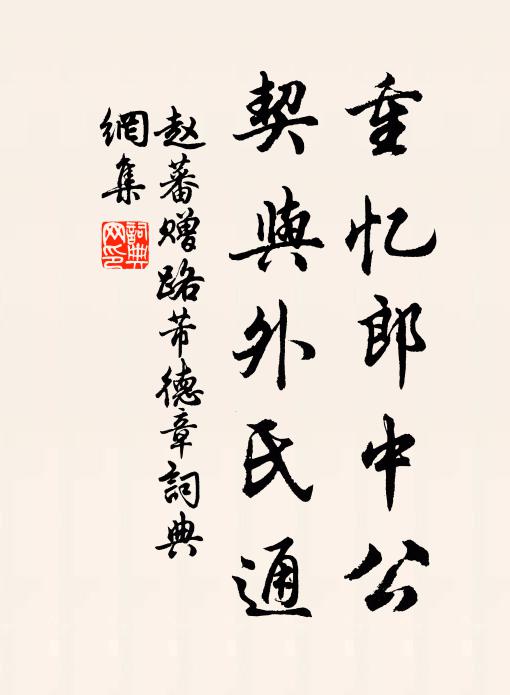 重忆郎中公
契與外氏通
赵蕃赠路芾德章詞典
網集
詞典
网印